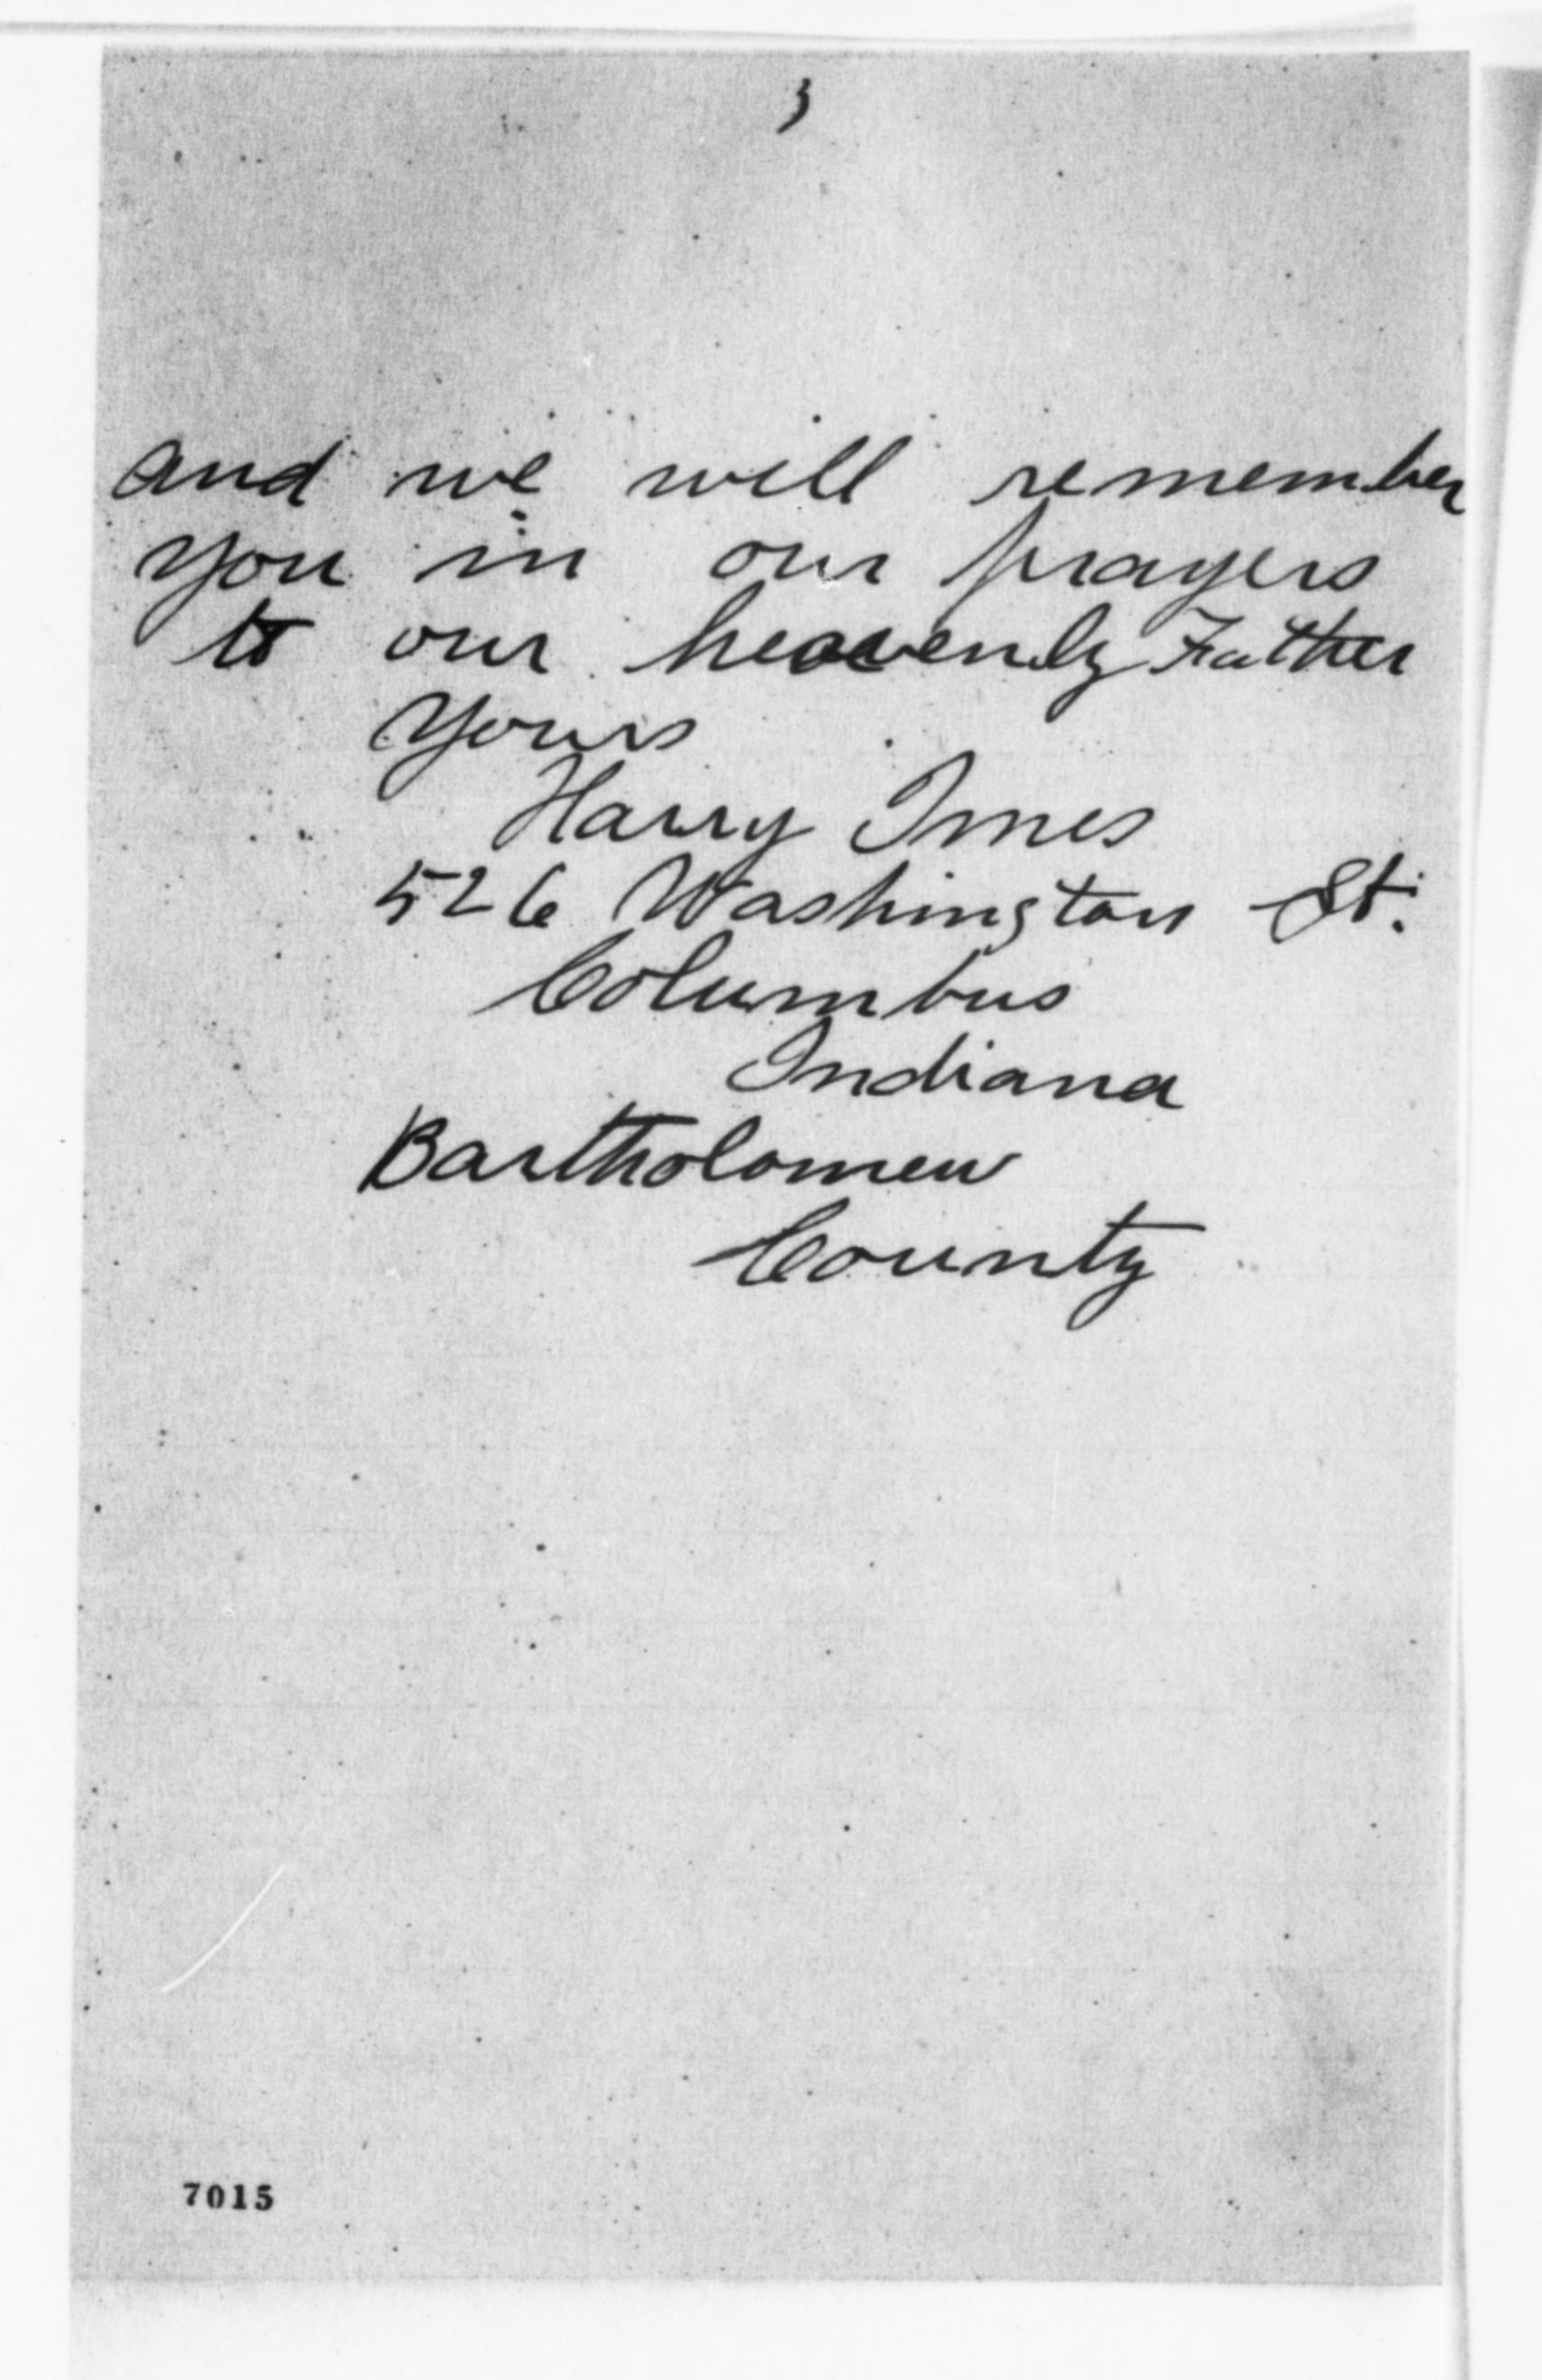 3
and we will remember
you in our prayers
to our heavenly Father
Yours
Harry Imes
526 Washington St.
Columbus
Indiana
Bartholomew
County
7015